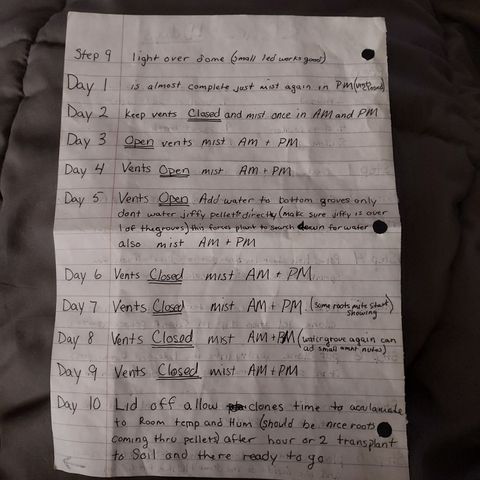 Step 9 light over dome (small led works good)
Day 1 is almost complete just mist again in PM (vents closed)
Day 2 Keep vents Closed and mist once in AM and PM
Day 3 Open vents mist AM + PM
Day 4 Vents Open mist AM + PM
Day 5 Vents Open Add water to bottom groves only
dont water jiffy pellets directly (make sure jiffy is over
1 of the groves) this forces plant to search down for water
also mist AM + PM
Day 6 Vents Closed mist AM + PM
Day 7 Vents Closed mist AM + PM. (some roots mite start showing)
Day 8 Vents Closed mist AM + PM (water grove again can ad small amnt nutes)
Day 9 Vents Closed mist AM + PM
Day 10 Lid off allow clones time to
to Room temp and Hum (should be nice roots
coming thru pellets) after hour or 2 transplant
to Soil and there ready to go